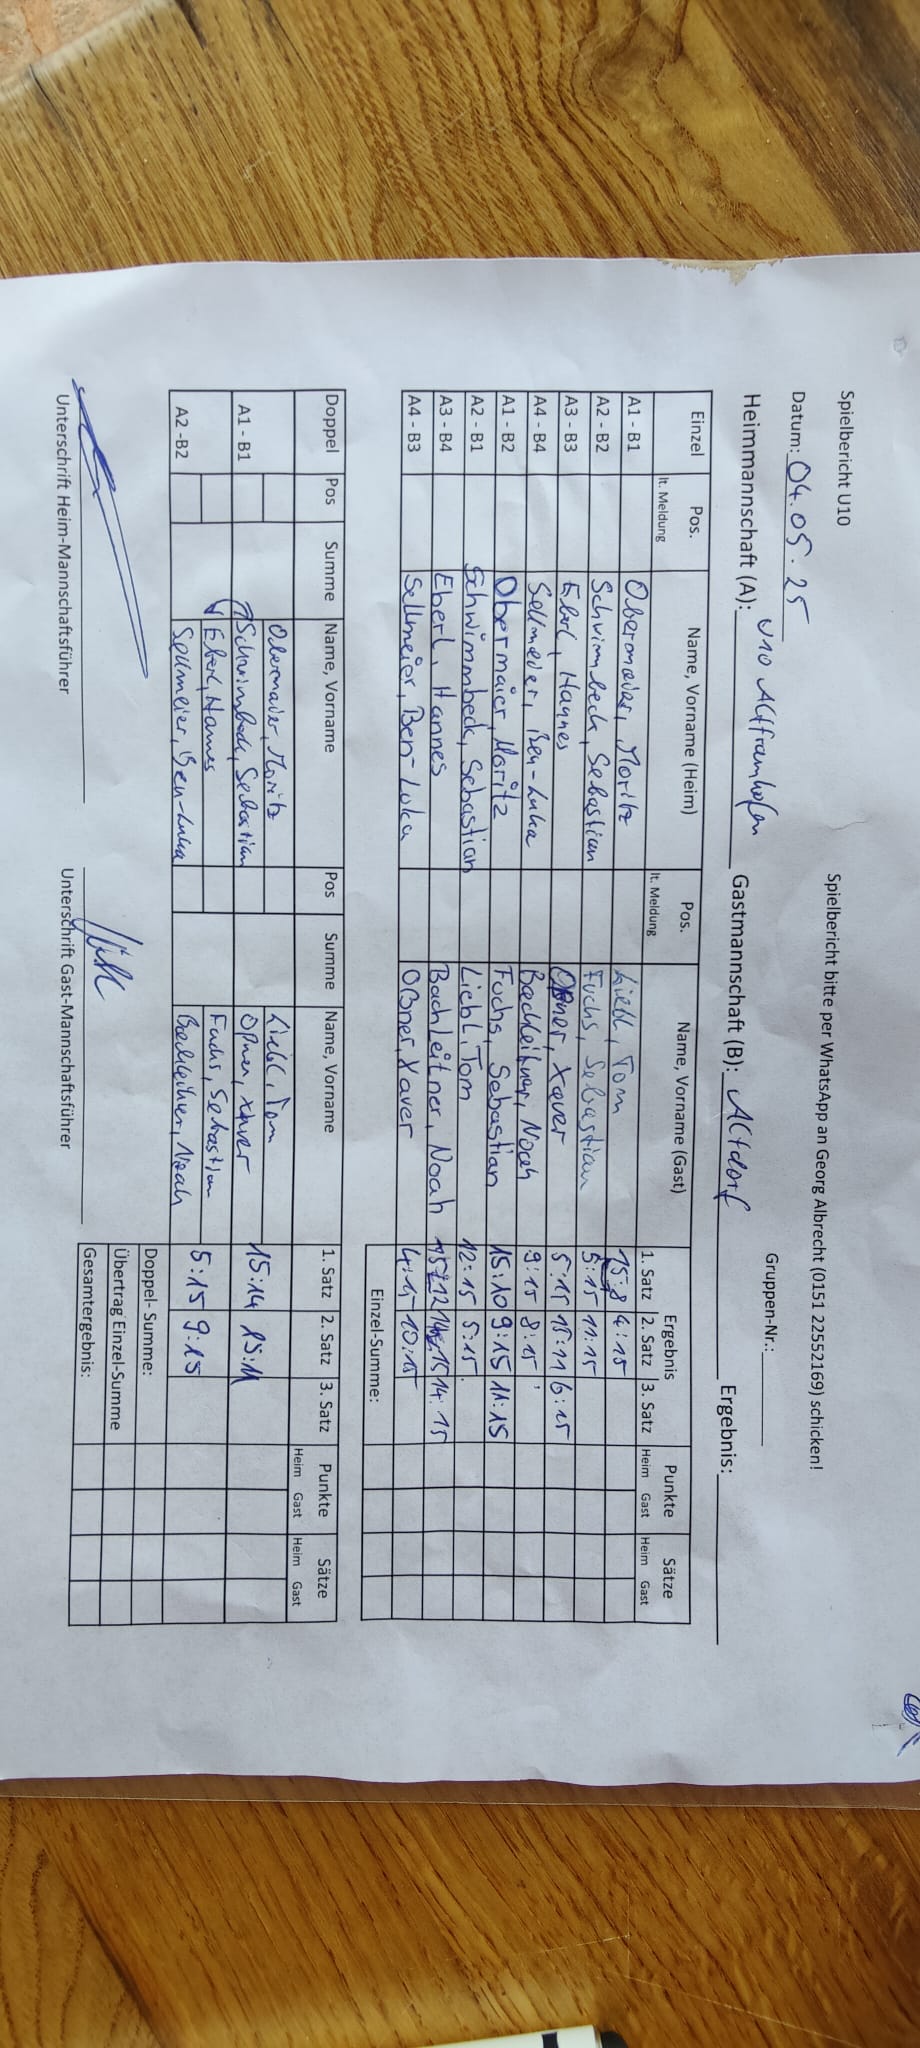 Spielbericht U10
Spielbericht bitte per WhatsApp an Georg Albrecht (0151 22552169) schicken!
Datum: 04.05.25
Gruppen-Nr.:
Heimmannschaft (A): U10 Altfraunhofen Gastmannschaft (B): Altdorf Ergebnis:
Einzel Pos. lt. Meldung Name, Vorname (Heim) Pos. lt. Meldung Name, Vorname (Gast) Ergebnis Punkte Sätze
1. Satz 2. Satz 3. Satz Heim Gast Heim Gast
A1 - B1 Obermaier, Moritz Liebl, Tom 15:8 4:15
A2 - B2 Schwimbeck, Sebastian Fuchs, Sebastian 5:15 11:15
A3 - B3 Eberl, Hannes Oßner, Xaver 5:15 15:11 6:15
A4 - B4 Sellmeier, Ben-Luka Bachleitner, Noah 9:15 8:15
A1 - B2 Obermaier, Moritz Fuchs, Sebastian 15:10 9:15 11:15
A2 - B1 Schwimmbeck, Sebastian Liebl, Tom 12:15 5:15
A3 - B4 Eberl, Hannes Bachleitner, Noah 15:12 14:15 14:15
A4 - B3 Sellmeier, Ben-Luka Oßner, Xaver 4:15 10:15
Einzel-Summe:
Doppel Pos Summe Name, Vorname Pos Summe Name, Vorname 1. Satz 2. Satz 3. Satz Punkte Sätze
Heim Gast Heim Gast
Obermaier, Moritz Liebl, Tom
A1 - B1 Schwimbeck, Sebastian Oßner, Xaver 15:14 15:11
Eberl, Hannes Fuchs, Sebastian
A2 -B2 Sellmeier, Ben-Luka Bachleitner, Noah 5:15 9:15
Doppel- Summe:
Übertrag Einzel-Summe
Gesamtergebnis:
Unterschrift Heim-Mannschaftsführer Unterschrift Gast-Mannschaftsführer